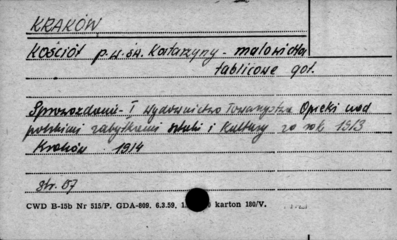 KRAKÓW
Kościół p.w. św. Katarzyny - malowidła
tablicowe got.
Sprawozdanie I Wydawnictwo Towarzystwa Opieki nad
polskimi zabytkami sztuki i Kultury za rok 1913
Kraków 1914
str. 87
CWD B-15b Nr 515/P. GDA-809. 6.3.59. karton 180/V.